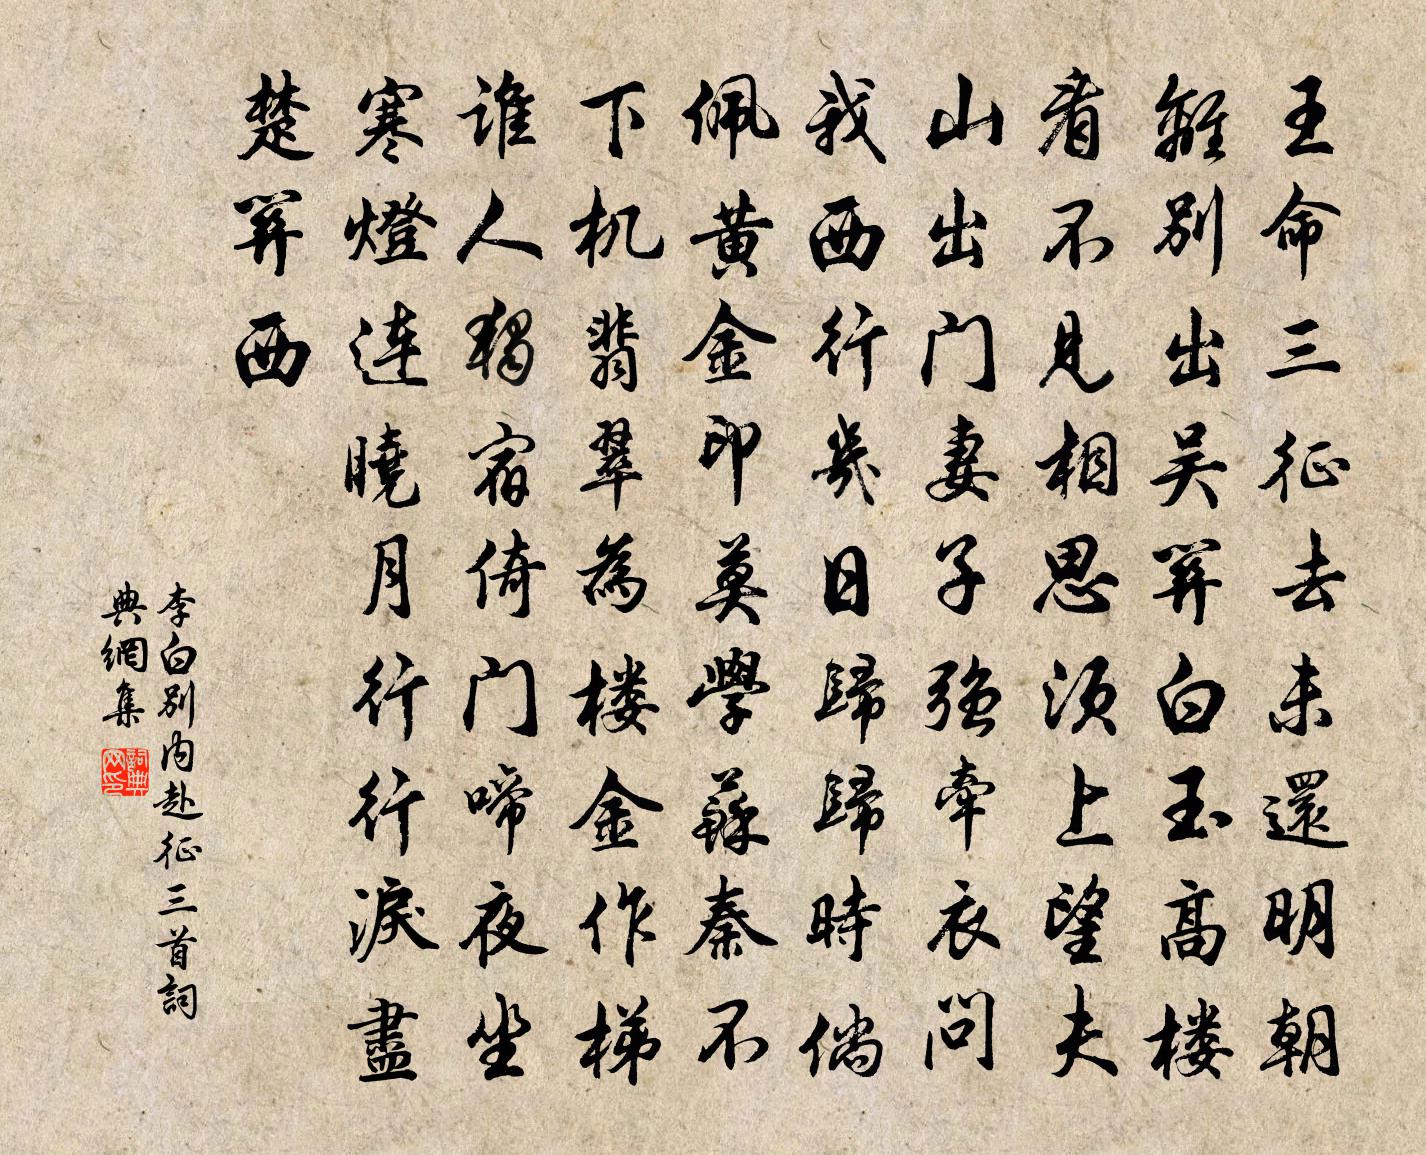 王命三征去未還明朝
離别出吴關白玉高楼
看不見相思須上望夫
山出门妻子强牽衣問
我西行幾日歸歸時倘
佩黄金印莫學蘇秦不
下机翡翠為楼金作梯
谁人獨宿倚门啼夜坐
寒燈連曉月行行淚盡
楚關西
李白别内赴征三首詞
典網集
詞典
网印